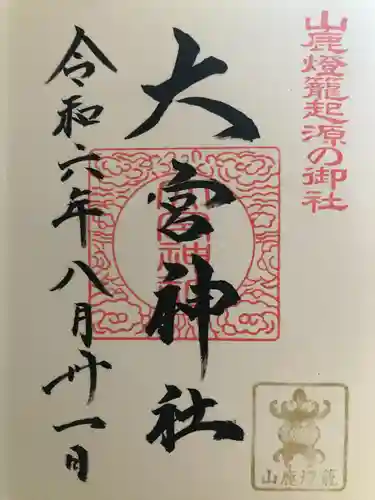 山鹿燈籠起源の御社
大宮神社
令和六年八月卅一日
大宮神社
山鹿灯籠